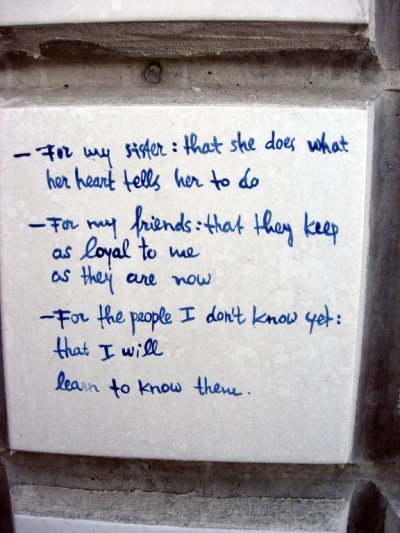 - For my sister: that she does what
her heart tells her to do
- For my friends: that they keep
as loyal to me
as they are now
- For the people I don't know yet:
that I will
learn to know them.